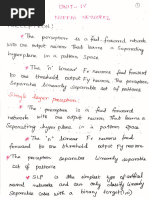 UNIT - IV
①
NEURAL NETWORKS
PERCEPTRON:
* The perceptron is a feed-forward network
with one output neuron that learns a Separating
hyperplane in a pattern Space.
* The 'n' linear Fx neurons feed forward
to one threshold output Fy neuron. The perceptron
linearly separable set of patterns.
Single layer perceptron
* The perceptron is a feed-forward
network with one output neuron that learns a
Separating hyper-plane in a pattern Space.
* The 'n' linear Fx neurons feed
forward to one threshold output Fy neuron.
* The perceptron separates linearly separable
set of patterns.
* SLP is the simplest type of artificial
neural networks and can only classify linearly
separable cases with a binary target (1,0)